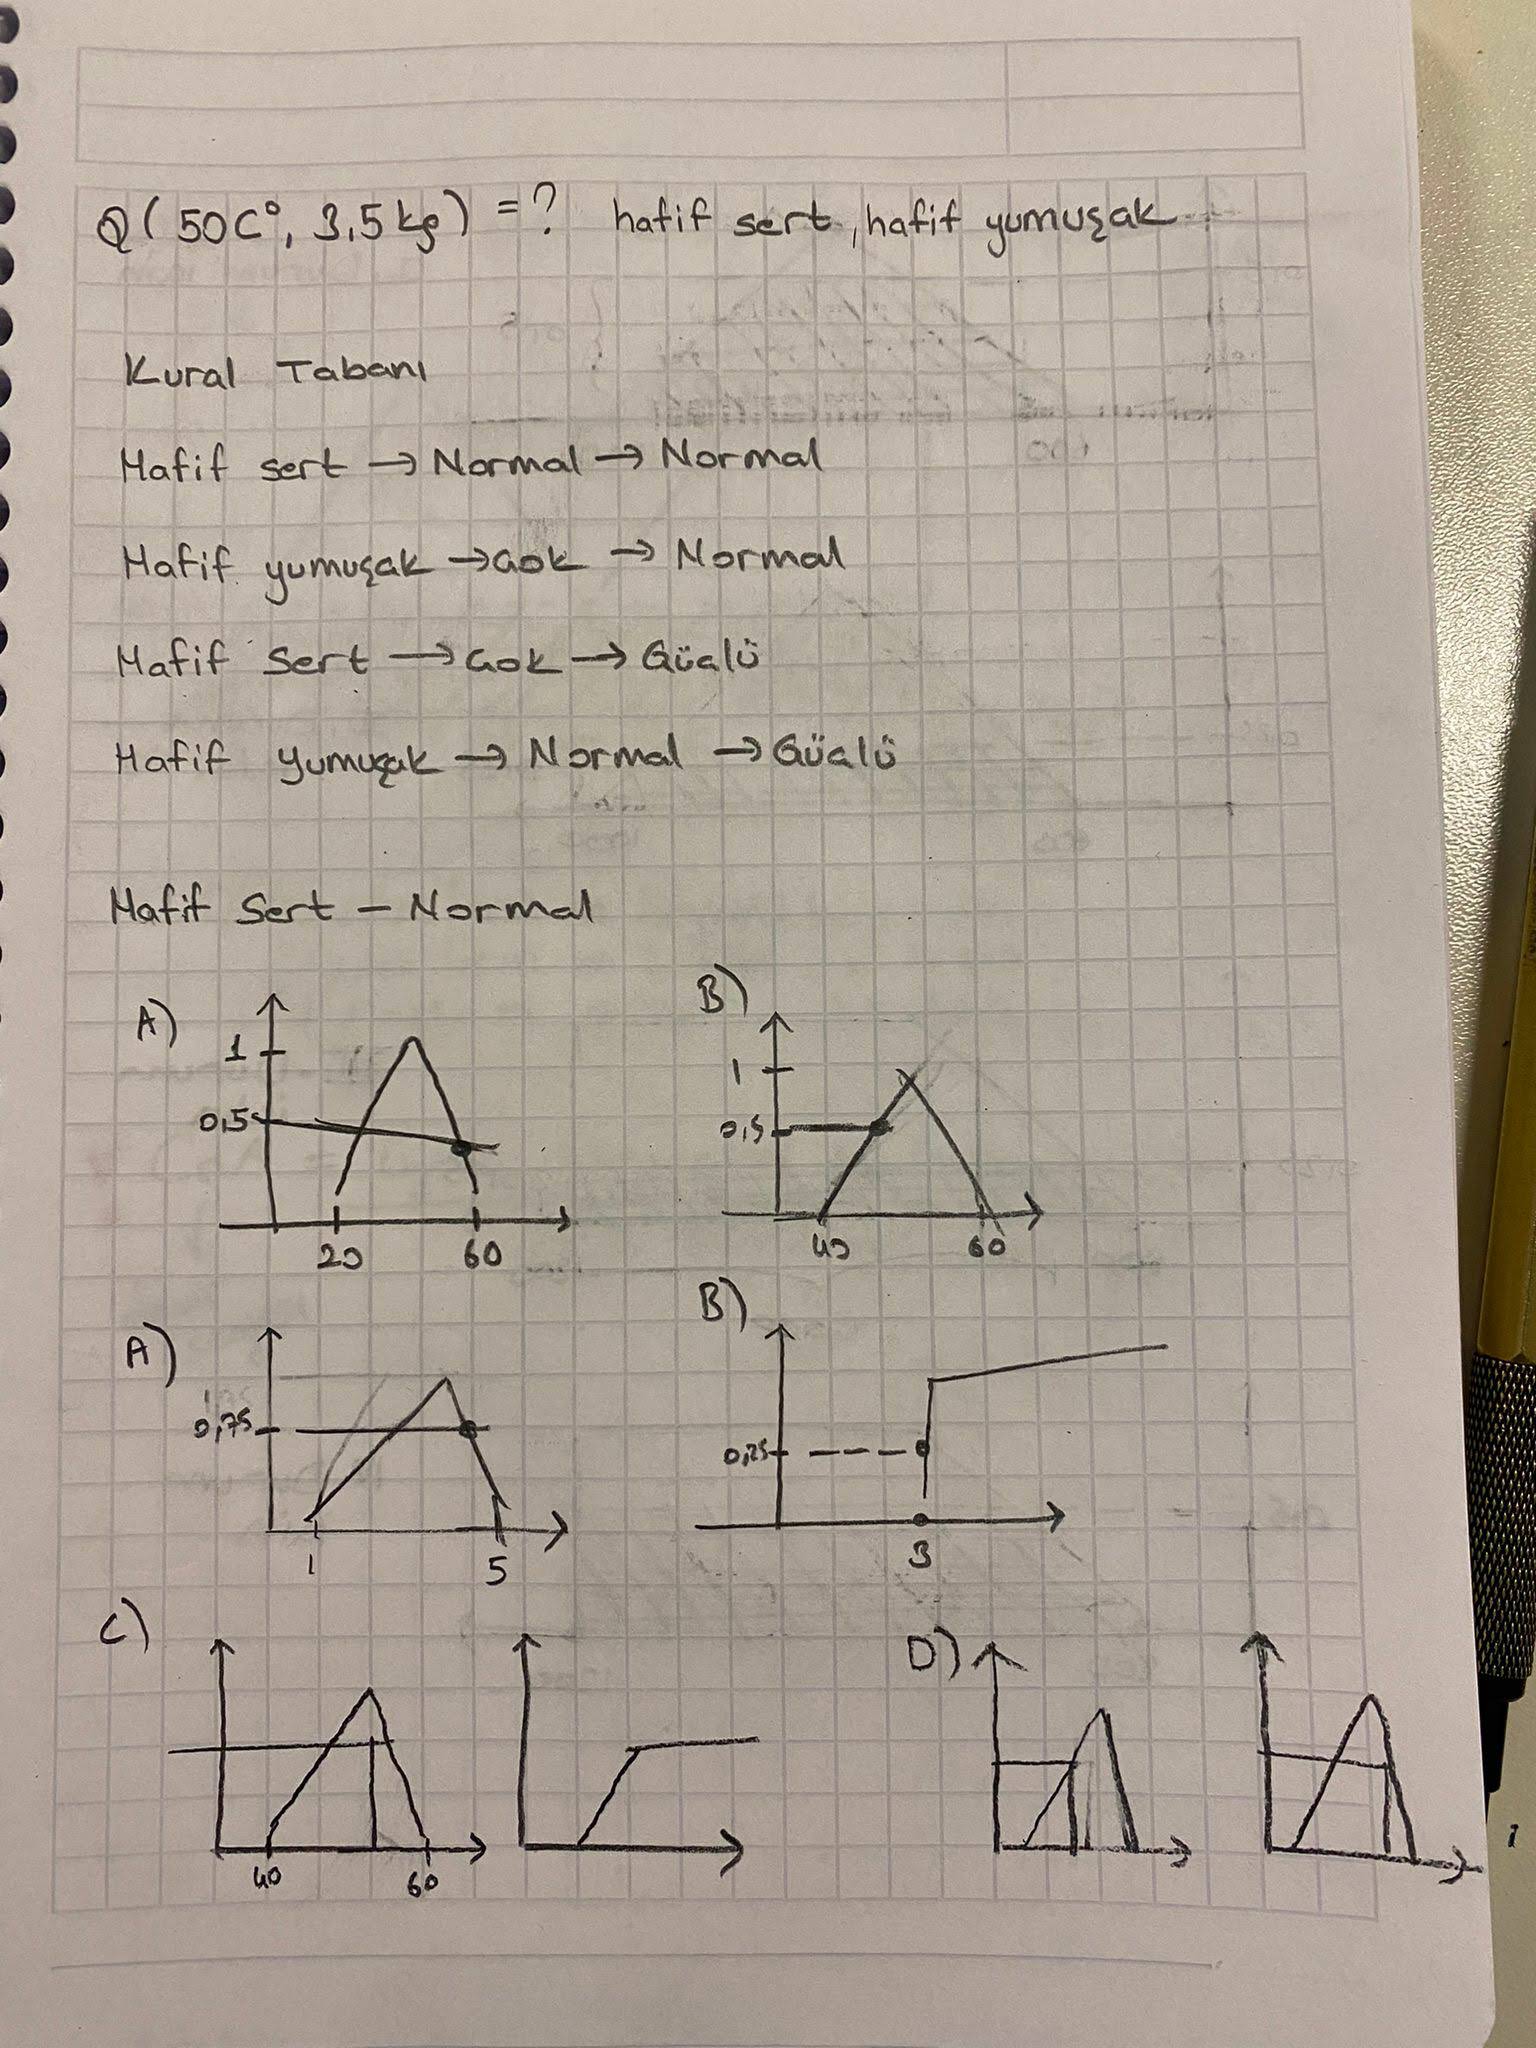 Q ( 50 C°, 3,5 kg ) = ? hafif sert, hafif yumuşak
Kural Tabanı
Hafif sert → Normal → Normal
Hafif yumuşak → Gok → Normal
Hafif sert → Gok → Güçlü
Hafif yumuşak → Normal → Güçlü
Hafif Sert – Normal
A) B)
1 1
0,5 0,5
20 60 40 60
A) B)
0,75 0,25
1 5 3
C) D)
40 60